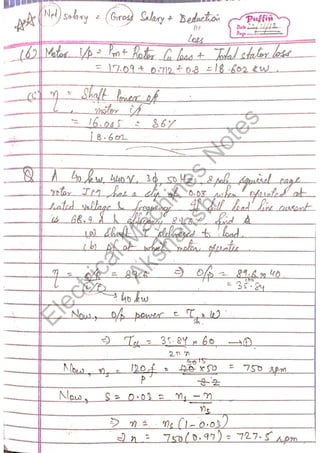 (Net) salary = (Gross Salary + Deduction
Puffin
Date
Page
loss
(b) Motor i/p = Pm + Rotor Cu loss + Total stator loss
= 17.09 + 0.712 + 0.8 = 18.602 kw.
(c) η = Shaft Power o/p
motor i/p
= 16.005 = 86%
18.602
Q A 40 kw, 440V, 3φ, 50 Hz, 8 pole squirrel cage
rotor IM has a slip of 0.03 when operated at
rated voltage & frequency. If full load line current
is 68.9 A & efficiency 89.6% find
(a) Shaft delivered to load.
(b) pf at which motor operates
η = o/p = 89.6 ⇒ o/p = 89.6 × 40
i/p = 35.84
40 kw
Now, o/p power = Tsh × ω
⇒ Tsh = 35.84 × 60 —①
2πn
Now, ns = 120f = 120 × 50 = 750 rpm
P 8
Now, S = 0.03 = ns - n
ns
⇒ n = ns (1-0.03)
⇒ n = 750 (0.97) = 727.5 rpm
Electrical Machines Notes